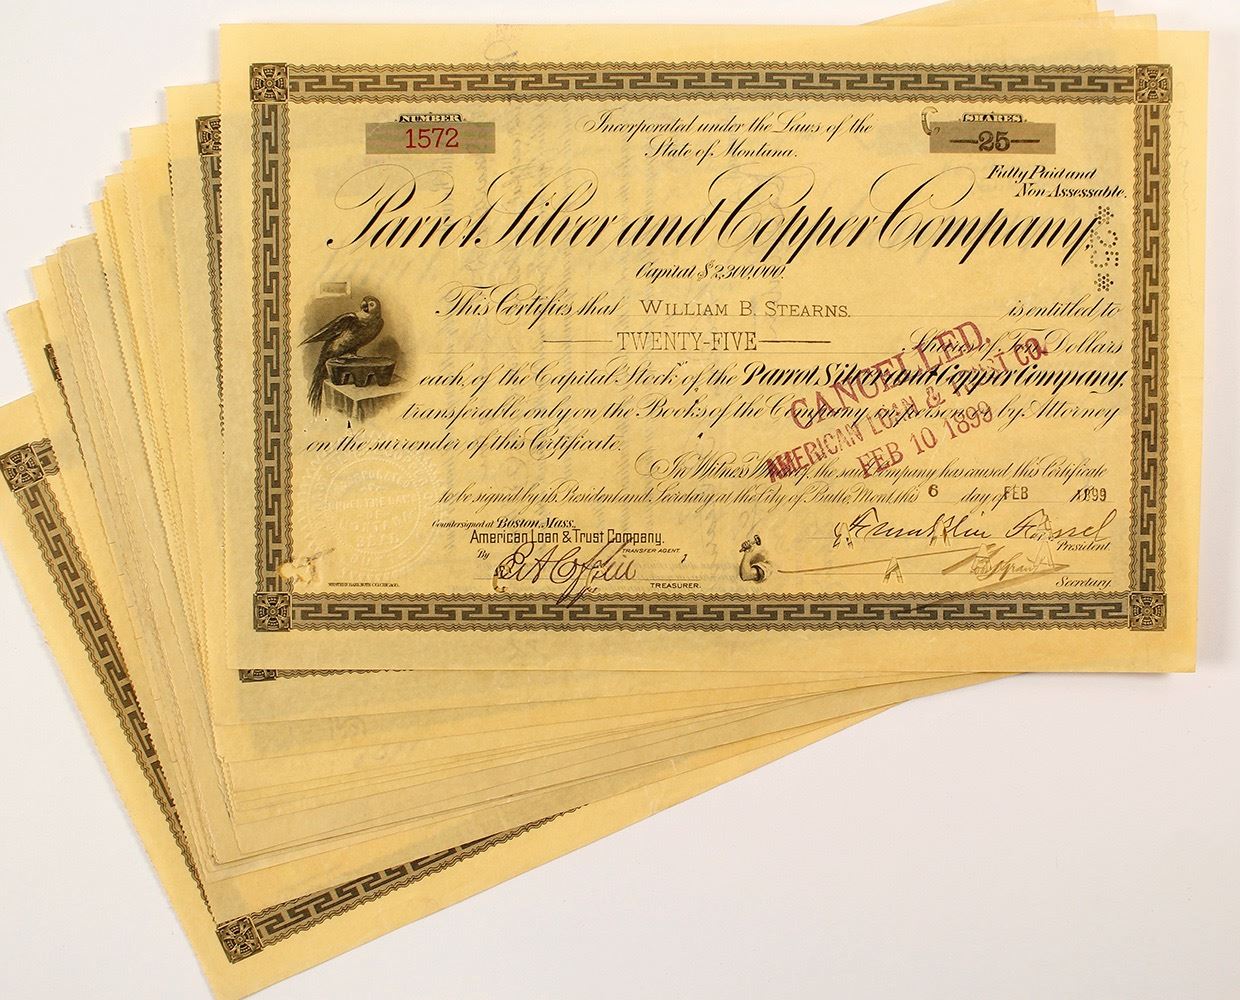 NUMBER
1572
Incorporated under the Laws of the
State of Montana.
SHARES
25
Fully Paid and
Non-Assessable.
Parrot Silver and Copper Company.
Capital $2,300,000.
*25*
This Certifies that WILLIAM B. STEARNS. is entitled to
TWENTY-FIVE Shares of Ten Dollars
each, of the Capital Stock of the Parrot Silver and Copper Company,
transferable only on the Books of the Company in person or by Attorney
on the surrender of this Certificate.
CANCELLED.
AMERICAN LOAN & TRUST CO.
FEB 10 1899
In Witness Whereof, the said Company has caused this Certificate
to be signed by its President and Secretary at the City of Butte, Mont. this 6 day of FEB 1899
Countersigned at Boston, Mass.
American Loan & Trust Company.
TRANSFER AGENT.
By
TREASURER.
Franklin Farrel
President.
Secretary.
WESTERN BANK NOTE CO. CHICAGO.